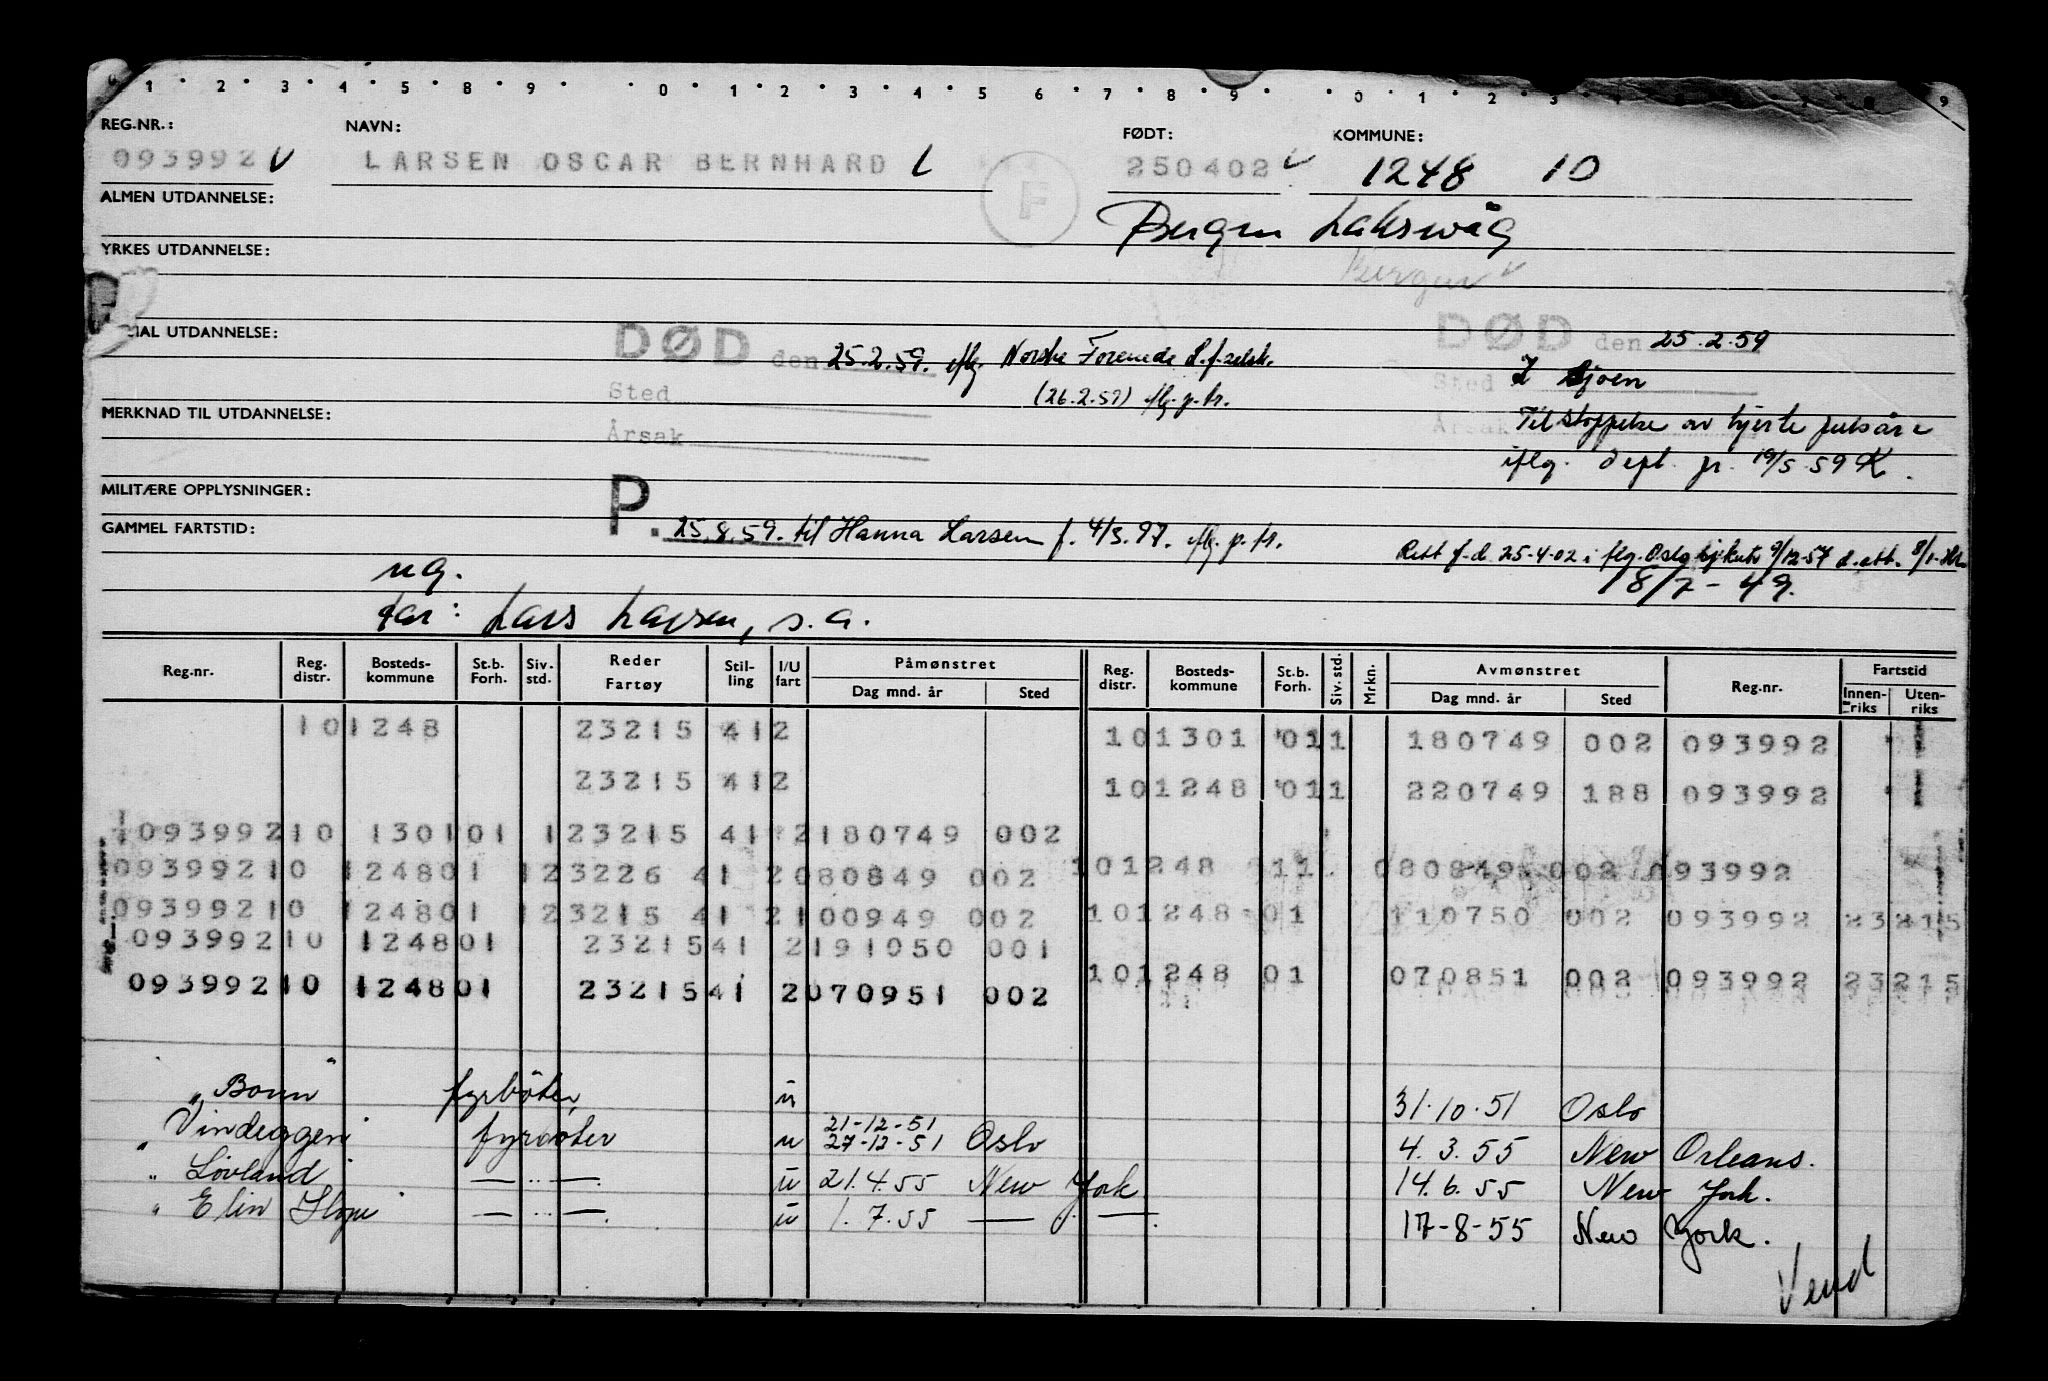 1 2 3 4 5 8 9 0 1 2 3 4 5 6 7 8 9 0 1 2 3 9
REG.NR.: NAVN: FØDT: KOMMUNE:
093992 LARSEN OSCAR BERNHARD F 250402 1248 10
ALMEN UTDANNELSE: Bergen Laksevåg
YRKES UTDANNELSE: Bergen
IAL UTDANNELSE: DØD den 25.2.59. iflg. Norske Forenede L.f.selsk. DØD den 25.2.59
Sted (26.2.59) iflg. p.tr. Sted I Sjøen
MERKNAD TIL UTDANNELSE: Årsak Tilstoppelse av hjerte pulsåre
iflg. dept. pr. 19/5 59 K.
MILITÆRE OPPLYSNINGER:
GAMMEL FARTSTID: P. 25.8.59. til Hanna Larsen f. 4/3.97. iflg. p.tr. Rett f.d. 25-4-02 iflg. Oslo 9/12-57 8/1
ug. 18/7-49.
far: Lars Larsen, s.a.
Reg.nr. Reg. distr. Bosteds-kommune St.b. Forh. Siv. std. Reder Fartøy Stil-ling I/U fart Påmønstret Dag mnd. år Sted Reg. distr. Bosteds-kommune St.b. Forh. Siv. std. Mrkn. Avmønstret Dag mnd. år Sted Reg.nr. Fartstid Innen-riks Uten-riks
101248 23215 412 101301 011 180749 002 093992
23215 412 101248 011 220749 188 093992
09399210 130101 123215 41 2180749 002
09399210 124801 123226 41 2080849 002 101248 11 080849 002 093992
09399210 124801 123215 41 2100949 002 101248 01 110750 002 093992 23215
09399210 124801 2321541 2191050 001
09399210 124801 2321541 2070951 002 101248 01 070851 002 093992 23215
"Bonn" fyrbøter, u 31.10.51 Oslo
"Vindeggen" fyrbøter u 21-12-51 27-12-51 Oslo 4.3.55 New Orleans.
" Løvland — " — u 21.4.55 New York 14.6.55 New York.
" Elin Hope — " — u 1.7.55 — " — 17-8-55 New York.
Vend